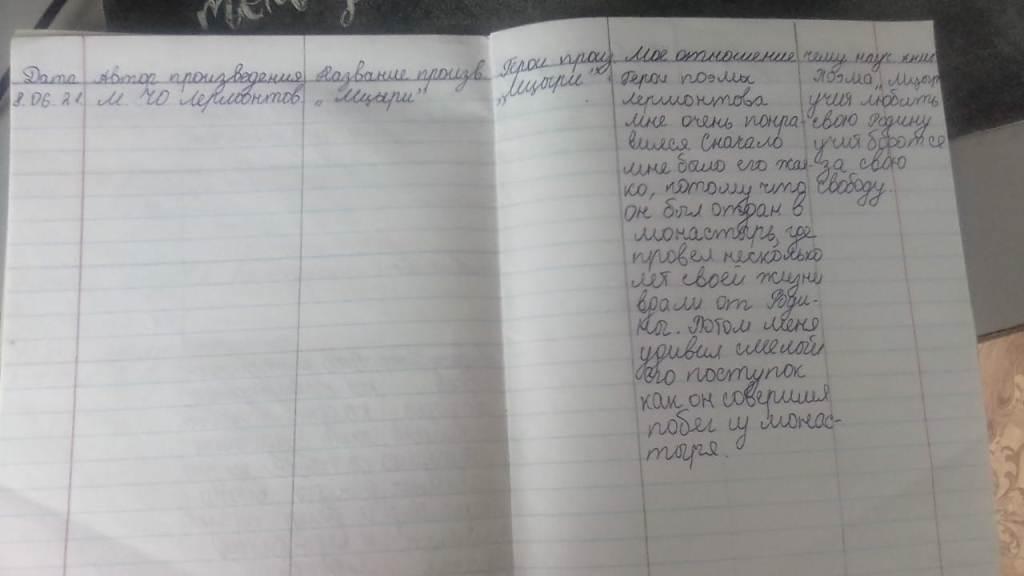 Дата
Автор произведения
Название произв
Герои произ
Мое отношение
чему науч книг
8.06.21
М. Ю Лермонтов
„Мцыри"
„Мцыри"
Герои поэмы
Лермонтова
мне очень понра-
вился Сначало
мне было его жал-
ко, потому что
он был отдан в
монастырь, где
провел несколько
лет своей жизни
врали от Роди-
ны. Потом меня
удивил смелый
его поступок
как он совершил
побег из монас-
тыря.
Поэма „Мцыр
учия любить
свою Родину
учит боротсе
за свою
свободу.